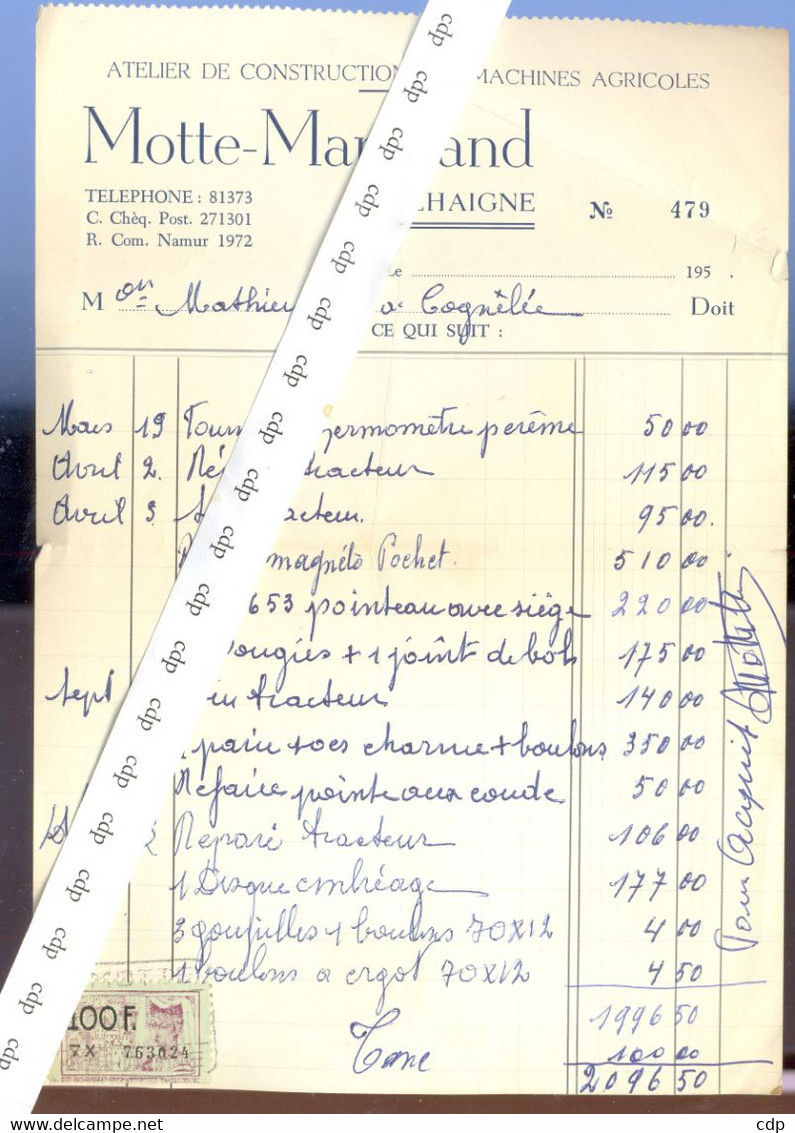 ATELIER DE CONSTRUCTION MACHINES AGRICOLES
Motte-Mar and
TELEPHONE : 81373
LHAIGNE
C. Chèq. Post. 271301
R. Com. Namur 1972
№ 479
Le 195 .
M on Mathieu a Cognèlée Doit
CE QUI SUIT :
Mars 19 50 00
Avril 2. tracteur 115 00
Avril 3. 95 00.
magnéto Pochet. 510 00
653 pointeau avec siège 220 00
ougies + 1 joint de bols 175 00
Sept tracteur 140 00
paire socs charrue + boulons 350 00
Refaire pointe aux coude 50 00
2 Réparé tracteur 106 00
1 Disque embréage 177 00
3 goupilles 1 boulons 70x12 4 00
1 boulons a ergot 70x12 4 50
1996 50
Taxe 100 00
2096 50
Pour Acquit
MOTTE
100F.
7X 763024
cdp cdp cdp cdp cdp cdp cdp cdp cdp cdp cdp cdp cdp cdp cdp cdp cdp cdp cdp cdp